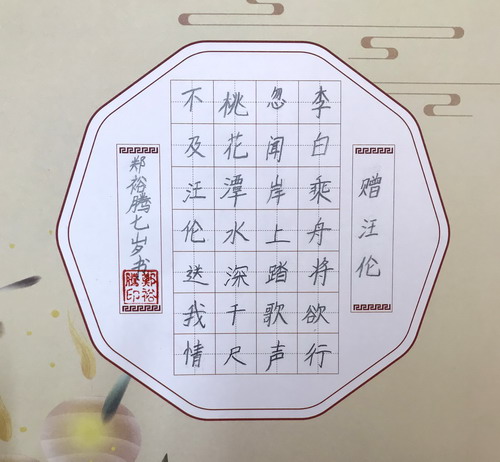 赠汪伦
李白乘舟将欲行
忽闻岸上踏歌声
桃花潭水深千尺
不及汪伦送我情
郑裕腾七岁书
鄭裕
騰印